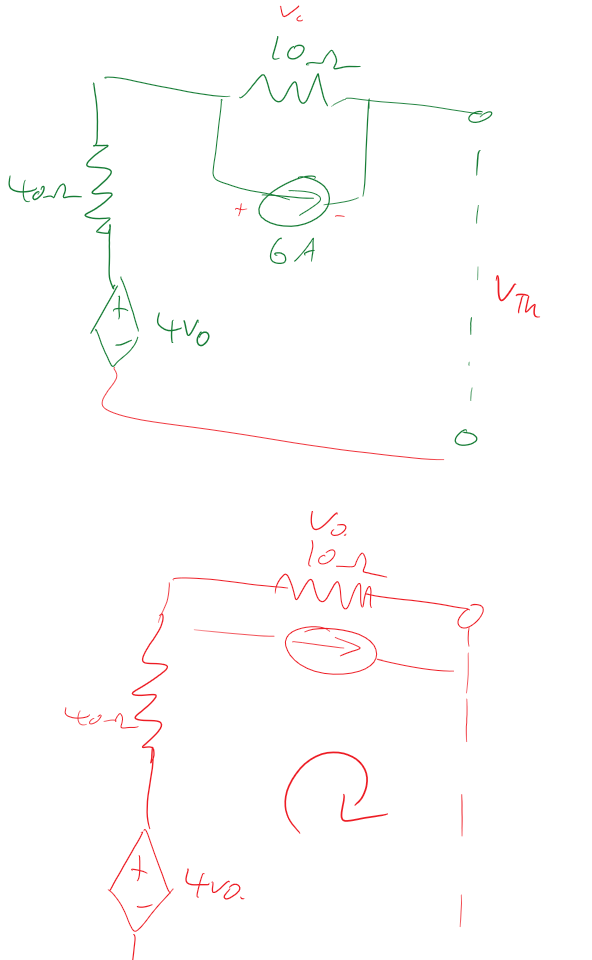 Vo
10Ω
40Ω
+ -
6A
+
-
4V0
VTh
Vo.
10Ω
40Ω
+
-
4V0.